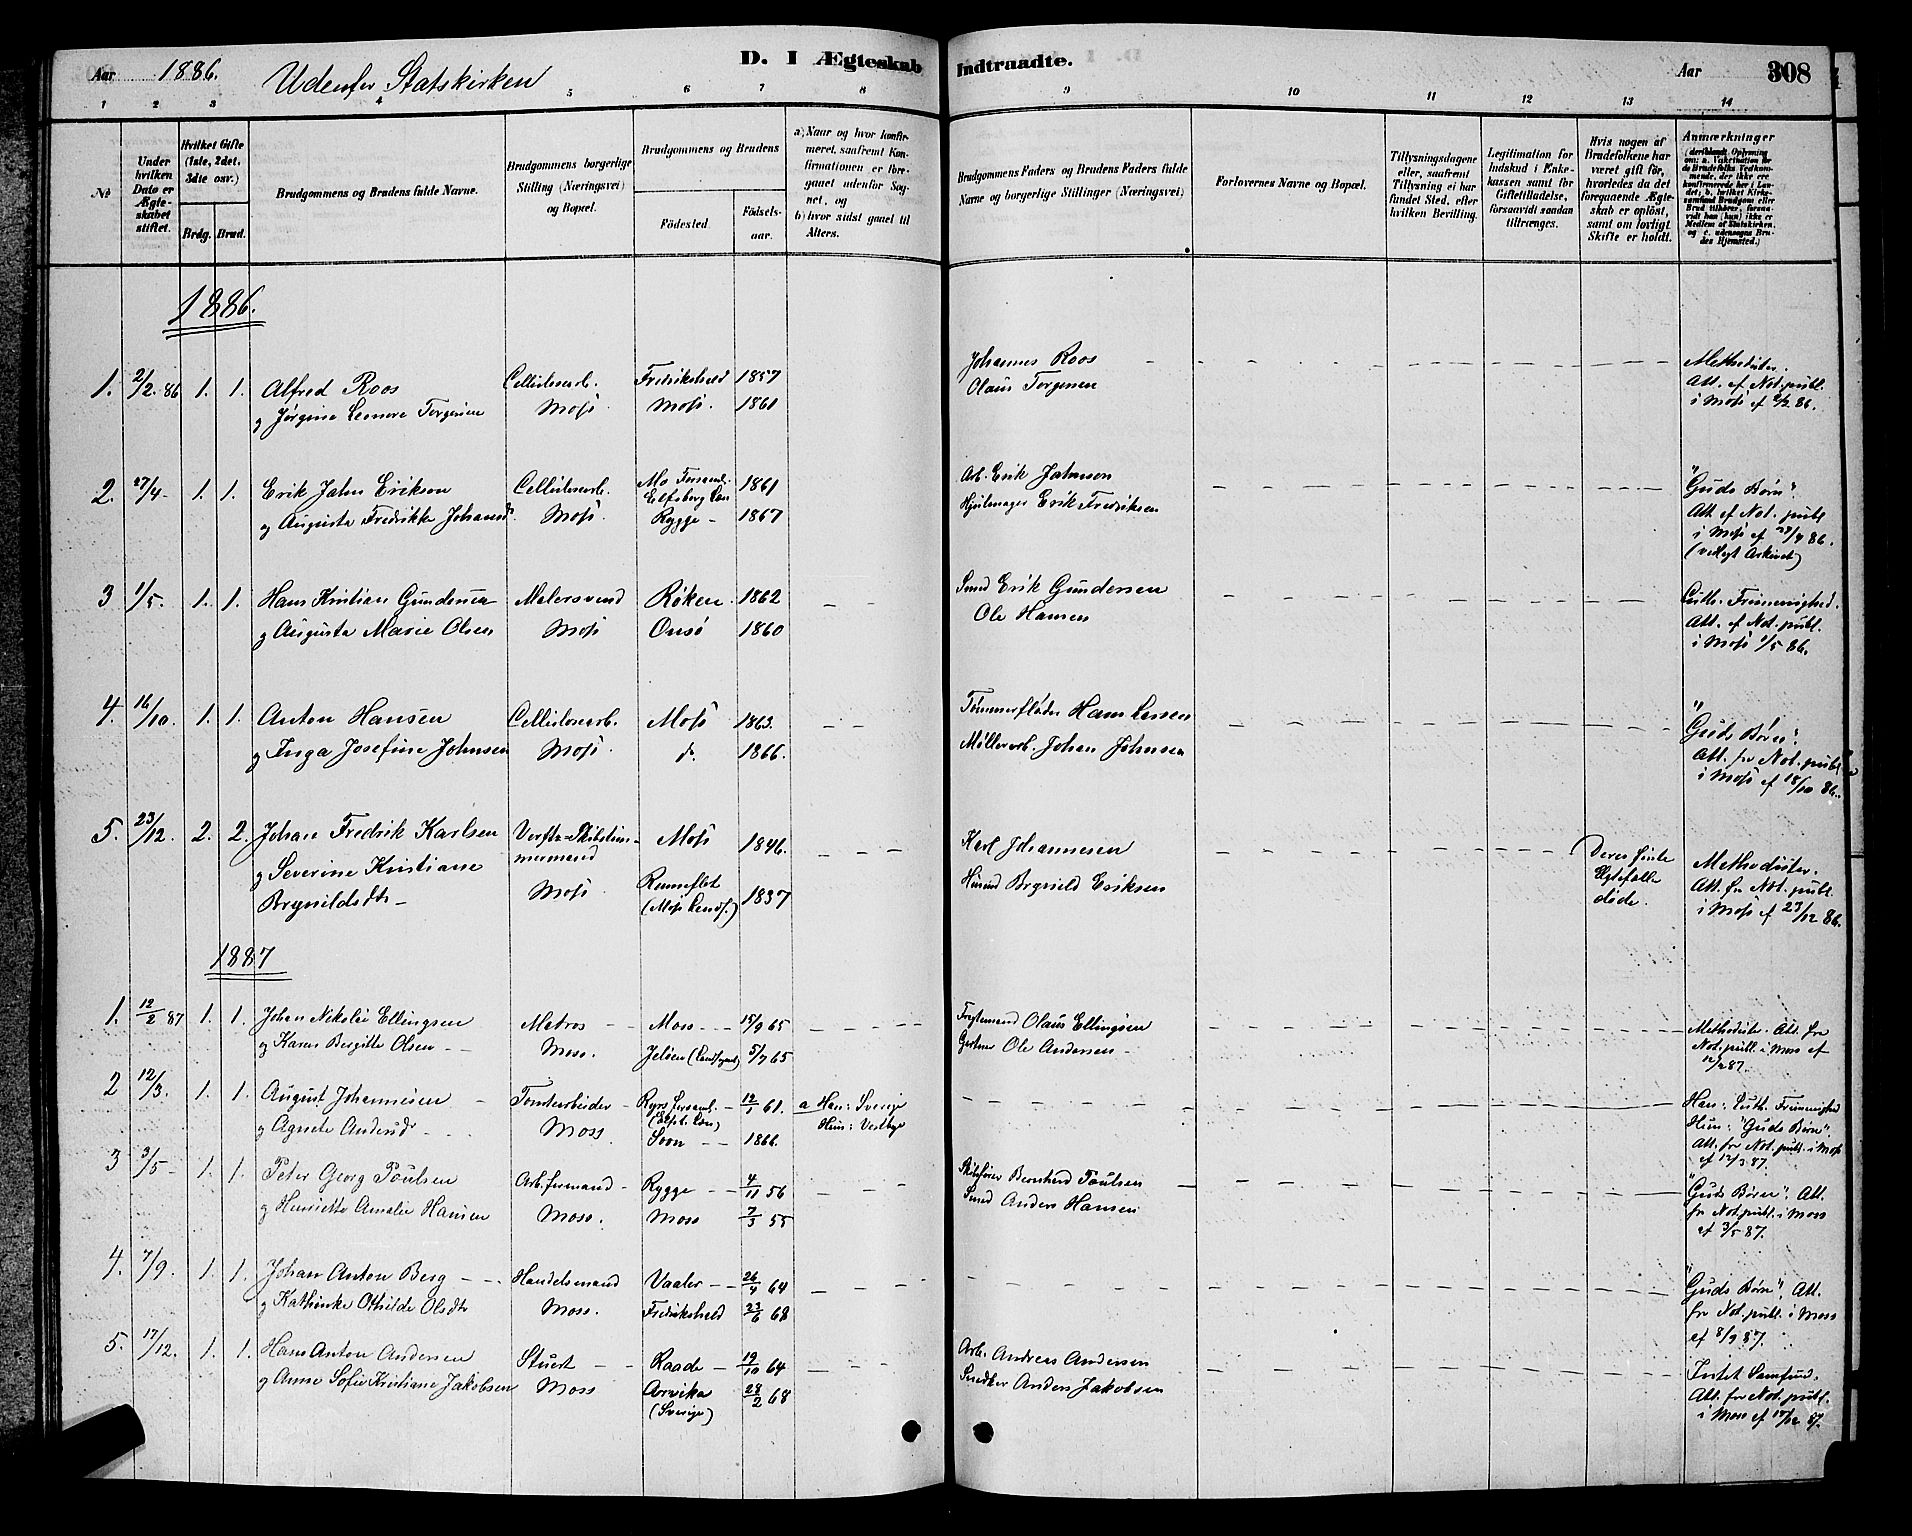 Aar 1886. Udenfor Statskirken D. I Ægteskab Indtraadte. Aar 308
1 2 3 4 5 6 7 8 9 10 11 12 13 14
№
Under hvilken Dato er Ægteskabet stiftet.
Hvilket Gifte (1ste, 2det, 3dte osv.)
Brdg. Brud.
Brudgommens og Brudens fulde Navne.
Brudgommens borgerlige Stilling (Næringsvei) og Bopæl.
Brudgommens og Brudens
Fødested. Fødsels-aar.
a) Naar og hvor konfirmeret, saafremt Konfirmationen er foregaaet udenfor Sognet, og
b) hvor sidst gaaet til Alters.
Brudgommens Faders og Brudens Faders fulde Navne og borgerlige Stillinger (Næringsvei)
Forlovernes Navne og Bopæl.
Tillysningsdagene eller, saafremt Tillysning ei har fundet Sted, efter hvilken Bevilling.
Legitimation for Indskud i Enkekassen samt for Giftetilladelse, forsaavidt saadan tiltrænges.
Hvis nogen af Brudefolkene har været gift før, hvorledes da det foregaaende Ægteskab er opløst, samt om lovligt Skifte er holdt.
Anmærkninger
(deriblandt Oplysning om: a. Vakcination for de Brudefolks Vedkommende, der ikke ere konfirmerede her i Landet, b. hvilket Kirkesamfund Brudgom eller Brud tilhører, forsaavidt han (hun) ikke er Medlem af Statskirken, og c. udensogns Brudes Hjemsted.)
1886.
1. 2/2. 86 1. 1. Alfred Roos Cellulosearb. Fredrikshald 1857 Johannes Roos Methodister.
og Jørgine Leonore Torgersen Moss. Moss. 1861 Olaus Torgersen Att. af Not. publ.
i Moss af 2/2 86.
2. 27/4 - 1. 1. Erik Jahn Erikson Cellulosearb. Mo Forsaml. Elfsborg Len 1861 Arb. Erik Jahnson "Guds Børn".
og Augusta Fredrikke Johansd. Moss. Rygge - 1867 Hjulmager Erik Fredriksen Att. af Not. publ.
i Moss af 27/4 86.
(vedlagt Arkivet)
3 1/5. 1. 1. Hans Kristian Gundersen Malersvend Røken 1862 Smed Erik Gundersen Luth. Frimenighed.
og Augusta Marie Olsen Moss Onsø 1860 Ole Hansen Att. af Not. publ.
i Moss 1/5 86.
4. 16/10. 1. 1. Anton Hansen Cellulosearb. Moss 1863. Tømmerfløder Hans Larsen "Guds Børn".
og Inga Josefine Johnsen Moss. d. 1866. Møllerarb. Johan Johnsen Att. fra Not. publ.
i Moss af 18/10 86.
5. 23/12. 2. 2. Johan Fredrik Karlsen Verfts-Skibstømmermand Moss 1846. Karl Johannesen Deres første Methodister.
og Severine Kristiane Moss Rønneflot 1837 Brynild Eriksen Ægtefælle Att. fra Not. publ.
Brynildsdtr - (Moss Lands.) døde. i Moss af 23/12 86.
1887
1. 12/2 87 1. 1. Johan Nikolai Ellingsen Matros Moss 15/9 65 Fragtemand Olaus Ellingsen Methodister. Att. fra
og Karen Bergitte Olsen Moss. Jeløen (Landsognet) 5/7 65 Gartner Ole Andersen Not. publ. i Moss af
12/2 87.
2 12/3. 1. 1. August Johannesen Tomtearbeider Ryrs Forsaml. (Elfsb. Len) 12/1 61. a Han: Sverige Han: Luth. Frimenighed
og Agnete Andersdtr Moss Soon 1866. Hun: Vestby Hun: "Guds Børn".
Att. fra Not. publ. i Moss
af 12/3 87.
3 3/5 - 1. 1. Peter Georg Poulsen Arb.formand Rygge 4/11 56 Skibsfører Bernhard Poulsen "Guds Børn". Att.
og Henriette Amalie Hansen Moss. Moss 7/3 55 Smed Anders Hansen fr Not. publ. i Moss
af 3/5 87.
4. 7/9. 1. 1. Johan Anton Berg Handelsmand Vaaler 26/4 64 "Guds Børn". Att.
og Kathinka Othilde Olsdtr Moss. Fredrikshald 23/6 68 fra Not. publ. i Moss
af 8/9 87.
5. 17/12. 1. 1. Hans Anton Andersen Stuert Raade 19/10 64 Arb. Andreas Andersen Intet Samfund.
og Anna Sofie Kristiane Jakobsen Moss Arvika (Sverige) 28/2 68 Snedker Anders Jakobsen Att. fra Not. publ.
i Moss af 17/12 87.